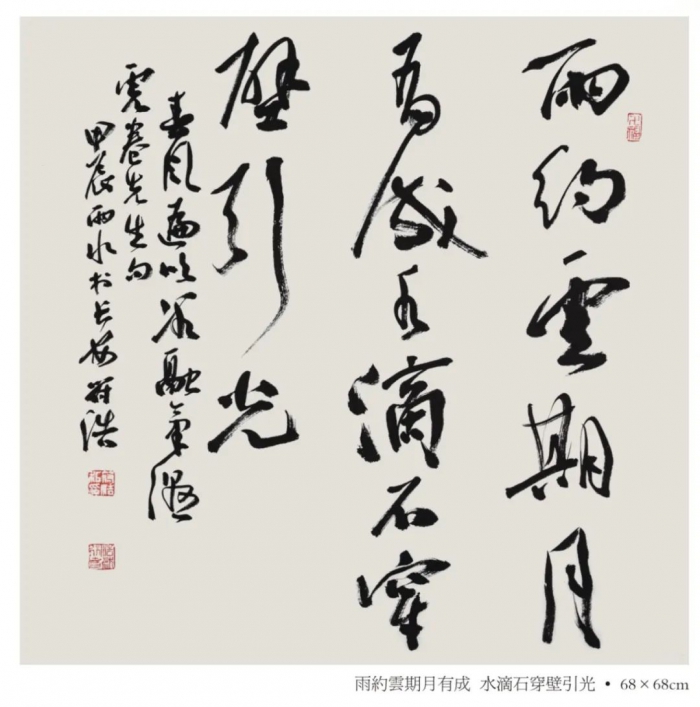 雨約雲期月
有成水滴石穿
壁引光
春風遍吹融氣
先生句
甲辰雨水於長安浩
雨約雲期月有成 水滴石穿壁引光 • 68×68cm